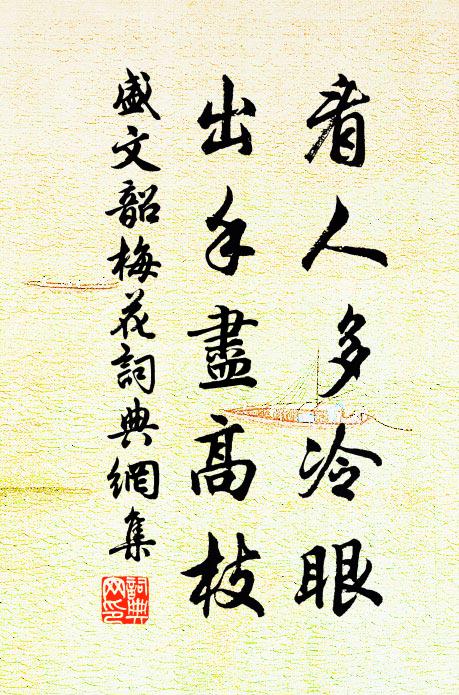 看人多冷眼
出手盡高枝
盛文韶梅花詞典網集
詞典网印